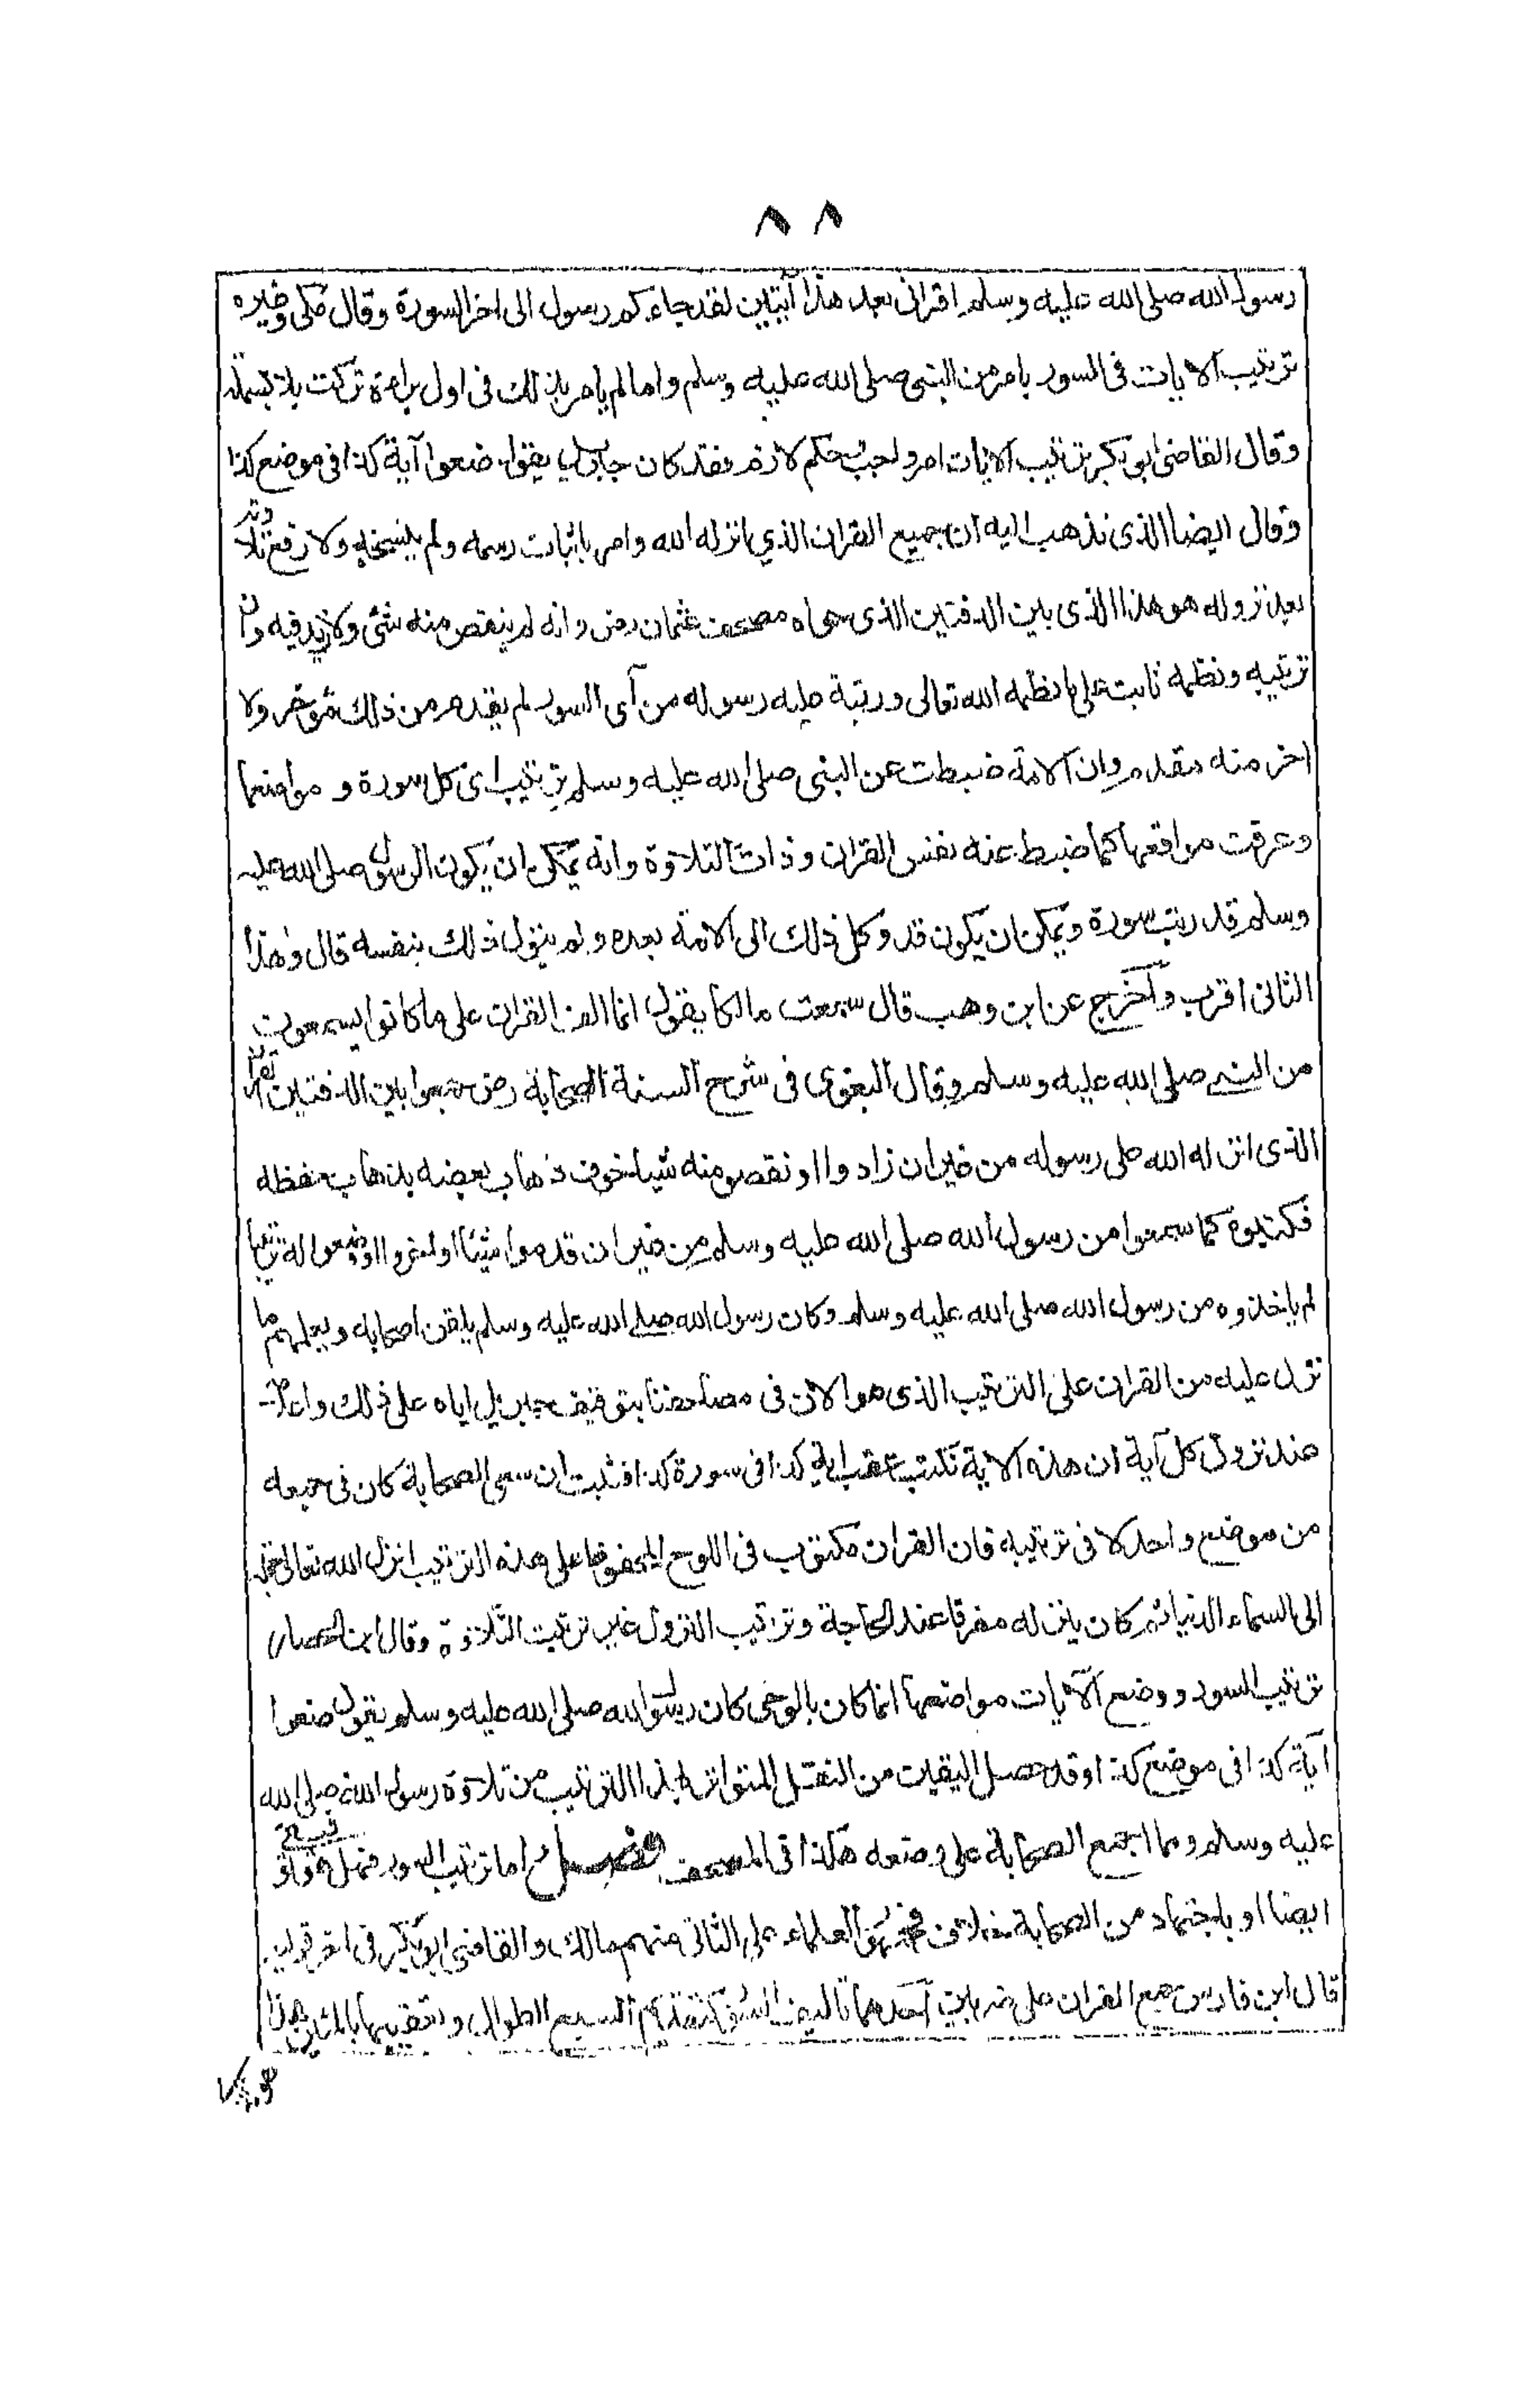 ٨٨
رسول الله صلى الله عليه وسلم اقرانى بعد هذا آيتين لقد جاءكم رسول الى اخر السورة وقال مكى وغيره
ترتيب الايات فى السور بامر من النبى صلى الله عليه وسلم ولما لم يامر بذلك فى اول براءة تركت بلا بسملة
وقال القاضى ابو بكر ترتيب الايات امر واجب وحكم لازم فقد كان جبريل يقول ضعوا آية كذا فى موضع كذا
وقال ايضا الذى نذهب اليه ان جميع القران الذى انزله الله وامر باثبات رسمه ولم ينسخه ولا رفع تلاوته
بعد نزوله هو هذا الذى بين الدفتين الذى حواه مصحف عثمان رض وانه لم ينقص منه شئ ولا زيد فيه وان
ترتيبه ونظمه ثابت على ما نظمه الله تعالى ورتبة عليه رسوله من آى السور لم يقدم من ذلك مؤخر ولا
اخر منه مقدم وان الامة ضبطت عن النبى صلى الله عليه وسلم ترتيب اى كل سورة و مواضعها
وعرفت مواقعها كما ضبط عنه نفس القران وذات التلاوة وانه يمكن ان يكون الرسول صلى الله عليه
وسلم قد رتب سورة ويمكن ان يكون قد وكل ذلك الى الامة بعده ولم يتول ذلك بنفسه قال وهذا
الثانى اقرب وآخرج عن ابن وهب قال سمعت مالكا يقول انما الف القران على ما كانوا يسمعون
من النبى صلى الله عليه وسلم وقال البغوى فى شرح السنة الصحابة رض جمعوا بين الدفتين القران
الذى انزله الله على رسوله من غير ان زادوا او نقصو منه شيا خوف ذهاب بعضه بذهاب حفظه
فكتبوه كما سمعوا من رسول الله صلى الله عليه وسلم من غير ان قدموا شيئا او اخروا او وضعوا له ترتيبا
لم ياخذوه من رسول الله صلى الله عليه وسلم وكان رسول الله صلى الله عليه وسلم يلقن اصحابه ويعلمهم ما
نزل عليه من القران على الترتيب الذى هو الان فى مصاحفنا بتوقيف جبريل اياه على ذلك واعلامه
عند نزول كل آية ان هذه الاية تكتب عقب اية كذا فى سورة كذا فثبت ان سعى الصحابة كان فى جمعه
من موضع واحد لا فى ترتيبه فان القران مكتوب فى اللوح المحفوظ على هذه الترتيب انزل الله تعالى جملة
الى السماء الدنيا ثم كان ينزله مفرقا عند الحاجة وترتيب النزول غير ترتيب التلاوة وقال ابن الحصار
ترتيب السور ووضع الآيات مواضعها انما كان بالوحى كان رسول الله صلى الله عليه وسلم يقول ضعوا
آية كذا فى موضع كذا وقد حصل اليقين من النقل المتواتر بهذا الترتيب من تلاوة رسول الله صلى الله
عليه وسلم ومما اجمع الصحابة على وضعه هكذا فى المصحف فصـــل اما ترتيب السور فهل هو توقيفى
ايضا او باجتهاد من الصحابة خلاف فجمهور العلماء على الثانى منهم مالك والقاضى ابو بكر فى اخر قوليه
قال ابن فارس جمع القران على ضربين آحدهما تاليف السور كتقديم السبع الطوال وتعقيبها بالمئين فهذا